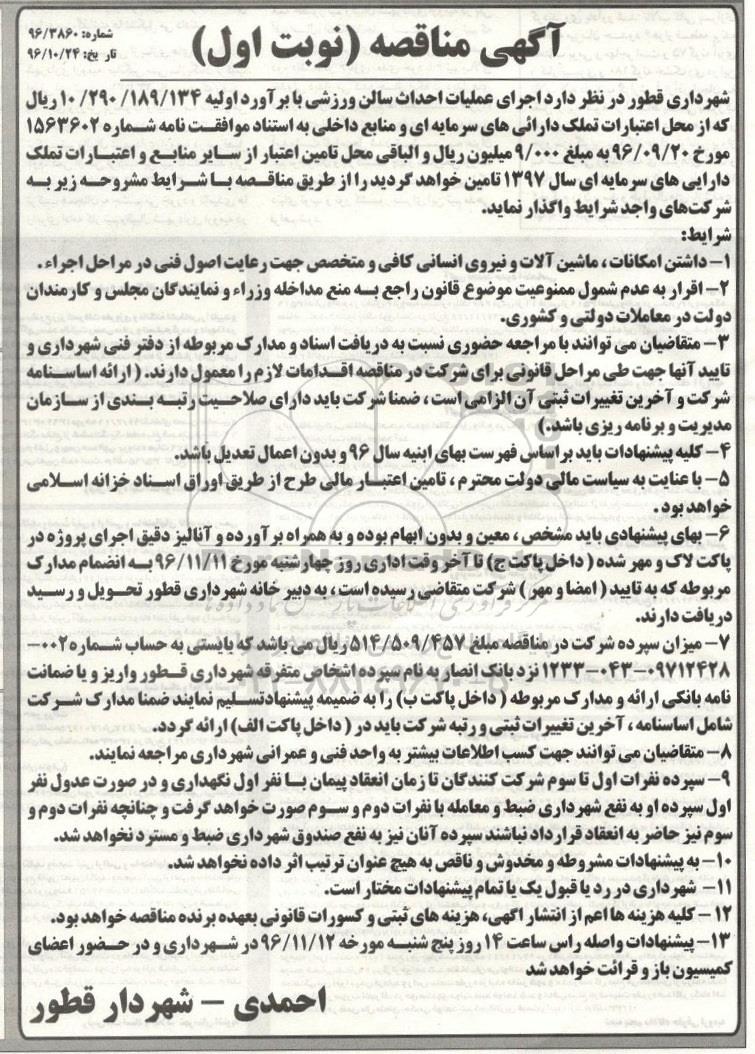 آگهی مناقصه (نوبت اول)
شماره: ۹۶/۳۸۶۰
تاریخ: ۹۶/۱۰/۲۴
شهرداری قطور در نظر دارد اجرای عملیات احداث سالن ورزشی با برآورد اولیه ۱۰/۲۹۰/۱۸۹/۱۳۴ ریال
که از محل اعتبارات تملک دارائی های سرمایه ای و منابع داخلی به استناد موافقت نامه شماره ۱۵۶۳۶۰۲
مورخ ۹۶/۰۹/۲۰ به مبلغ ۹/۰۰۰ میلیون ریال و الباقی محل تامین اعتبار از سایر منابع و اعتبارات تملک
دارایی های سرمایه ای سال ۱۳۹۷ تامین خواهد گردید را از طریق مناقصه با شرایط مشروحه زیر به
شرکت‌های واجد شرایط واگذار نماید.
شرایط:
۱- داشتن امکانات، ماشین آلات و نیروی انسانی کافی و متخصص جهت رعایت اصول فنی در مراحل اجراء.
۲- اقرار به عدم شمول ممنوعیت موضوع قانون راجع به منع مداخله وزراء و نمایندگان مجلس و کارمندان
دولت در معاملات دولتی و کشوری.
۳- متقاضیان می توانند با مراجعه حضوری نسبت به دریافت اسناد و مدارک مربوطه از دفتر فنی شهرداری و
تایید آنها جهت طی مراحل قانونی برای شرکت در مناقصه اقدامات لازم را معمول دارند. (ارائه اساسنامه
شرکت و آخرین تغییرات ثبتی آن الزامی است، ضمنا شرکت باید دارای صلاحیت رتبه بندی از سازمان
مدیریت و برنامه ریزی باشد.)
۴- کلیه پیشنهادات باید بر اساس فهرست بهای ابنیه سال ۹۶ و بدون اعمال تعدیل باشد.
۵- با عنایت به سیاست مالی دولت محترم، تامین اعتبار مالی طرح از طریق اوراق اسناد خزانه اسلامی
خواهد بود.
۶- بهای پیشنهادی باید مشخص، معین و بدون ابهام بوده و به همراه برآورده و آنالیز دقیق اجرای پروژه در
پاکت لاک و مهر شده (داخل پاکت ج) تا آخر وقت اداری روز چهارشنبه مورخ ۹۶/۱۱/۱۱ به انضمام مدارک
مربوطه که به تایید (امضا و مهر) شرکت متقاضی رسیده است، به دبیر خانه شهرداری قطور تحویل و رسید
دریافت دارند.
۷- میزان سپرده شرکت در مناقصه مبلغ ۵۱۴/۵۰۹/۴۵۷ ریال می باشد که بایستی به حساب شماره ۰۰۲-
۰۹۷۱۲۴۲۸-۰۴۳-۱۲۳۳ نزد بانک انصار به نام سپرده اشخاص متفرقه شهرداری قطور واریز و یا ضمانت
نامه بانکی ارائه و مدارک مربوطه (داخل پاکت ب) را به ضمیمه پیشنهاد تسلیم نمایند ضمنا مدارک شرکت
شامل اساسنامه، آخرین تغییرات ثبتی و رتبه شرکت باید در (داخل پاکت الف) ارائه گردد.
۸- متقاضیان می توانند جهت کسب اطلاعات بیشتر به واحد فنی و عمرانی شهرداری مراجعه نمایند.
۹- سپرده نفرات اول تا سوم شرکت کنندگان تا زمان انعقاد پیمان با نفر اول نگهداری و در صورت عدول نفر
اول سپرده او به نفع شهرداری ضبط و معامله با نفرات دوم و سوم صورت خواهد گرفت و چنانچه نفرات دوم و
سوم نیز حاضر به انعقاد قرارداد نباشند سپرده آنان نیز به نفع صندوق شهرداری ضبط و مسترد نخواهد شد.
۱۰- به پیشنهادات مشروطه و مخدوش و ناقص به هیچ عنوان ترتیب اثر داده نخواهد شد.
۱۱- شهرداری در رد یا قبول یک یا تمام پیشنهادات مختار است.
۱۲- کلیه هزینه ها اعم از انتشار اگهی، هزینه های ثبتی و کسورات قانونی بعهده برنده مناقصه خواهد بود.
۱۳- پیشنهادات واصله راس ساعت ۱۴ روز پنج شنبه مورخه ۹۶/۱۱/۱۲ در شهرداری و در حضور اعضای
کمیسیون باز و قرائت خواهد شد
احمدی - شهردار قطور